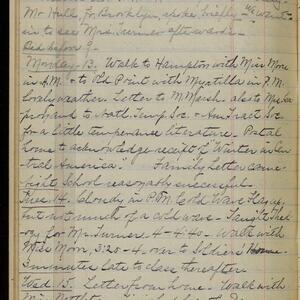 Mr Hull, for Brooklyn, spoke briefly - We went
in to see Mrs. Turner afterwards.
Bed before 9.
Monday 13. Walk to Hampton with Miss More
in A.M. & to Old Point with Myrtilla in P.M.
Lovely weather. Letter to M. Marsh. also to
for a little temperance literature. Postal
home to acknowledge receipt of "Winter in Cen-
tral America". Family Letter came.
Night School reasonably successful.
Tues. 14. Cloudy in P.M. Cold Wave Flag,
but not much of a cold wave. Taught
for Mr. Turner 4-4.40. Walk with
Miss Moon, 3.20-4. over to Soldiers' Home.
late to class thereafter.
Wed 15. Letter from home. Walk with